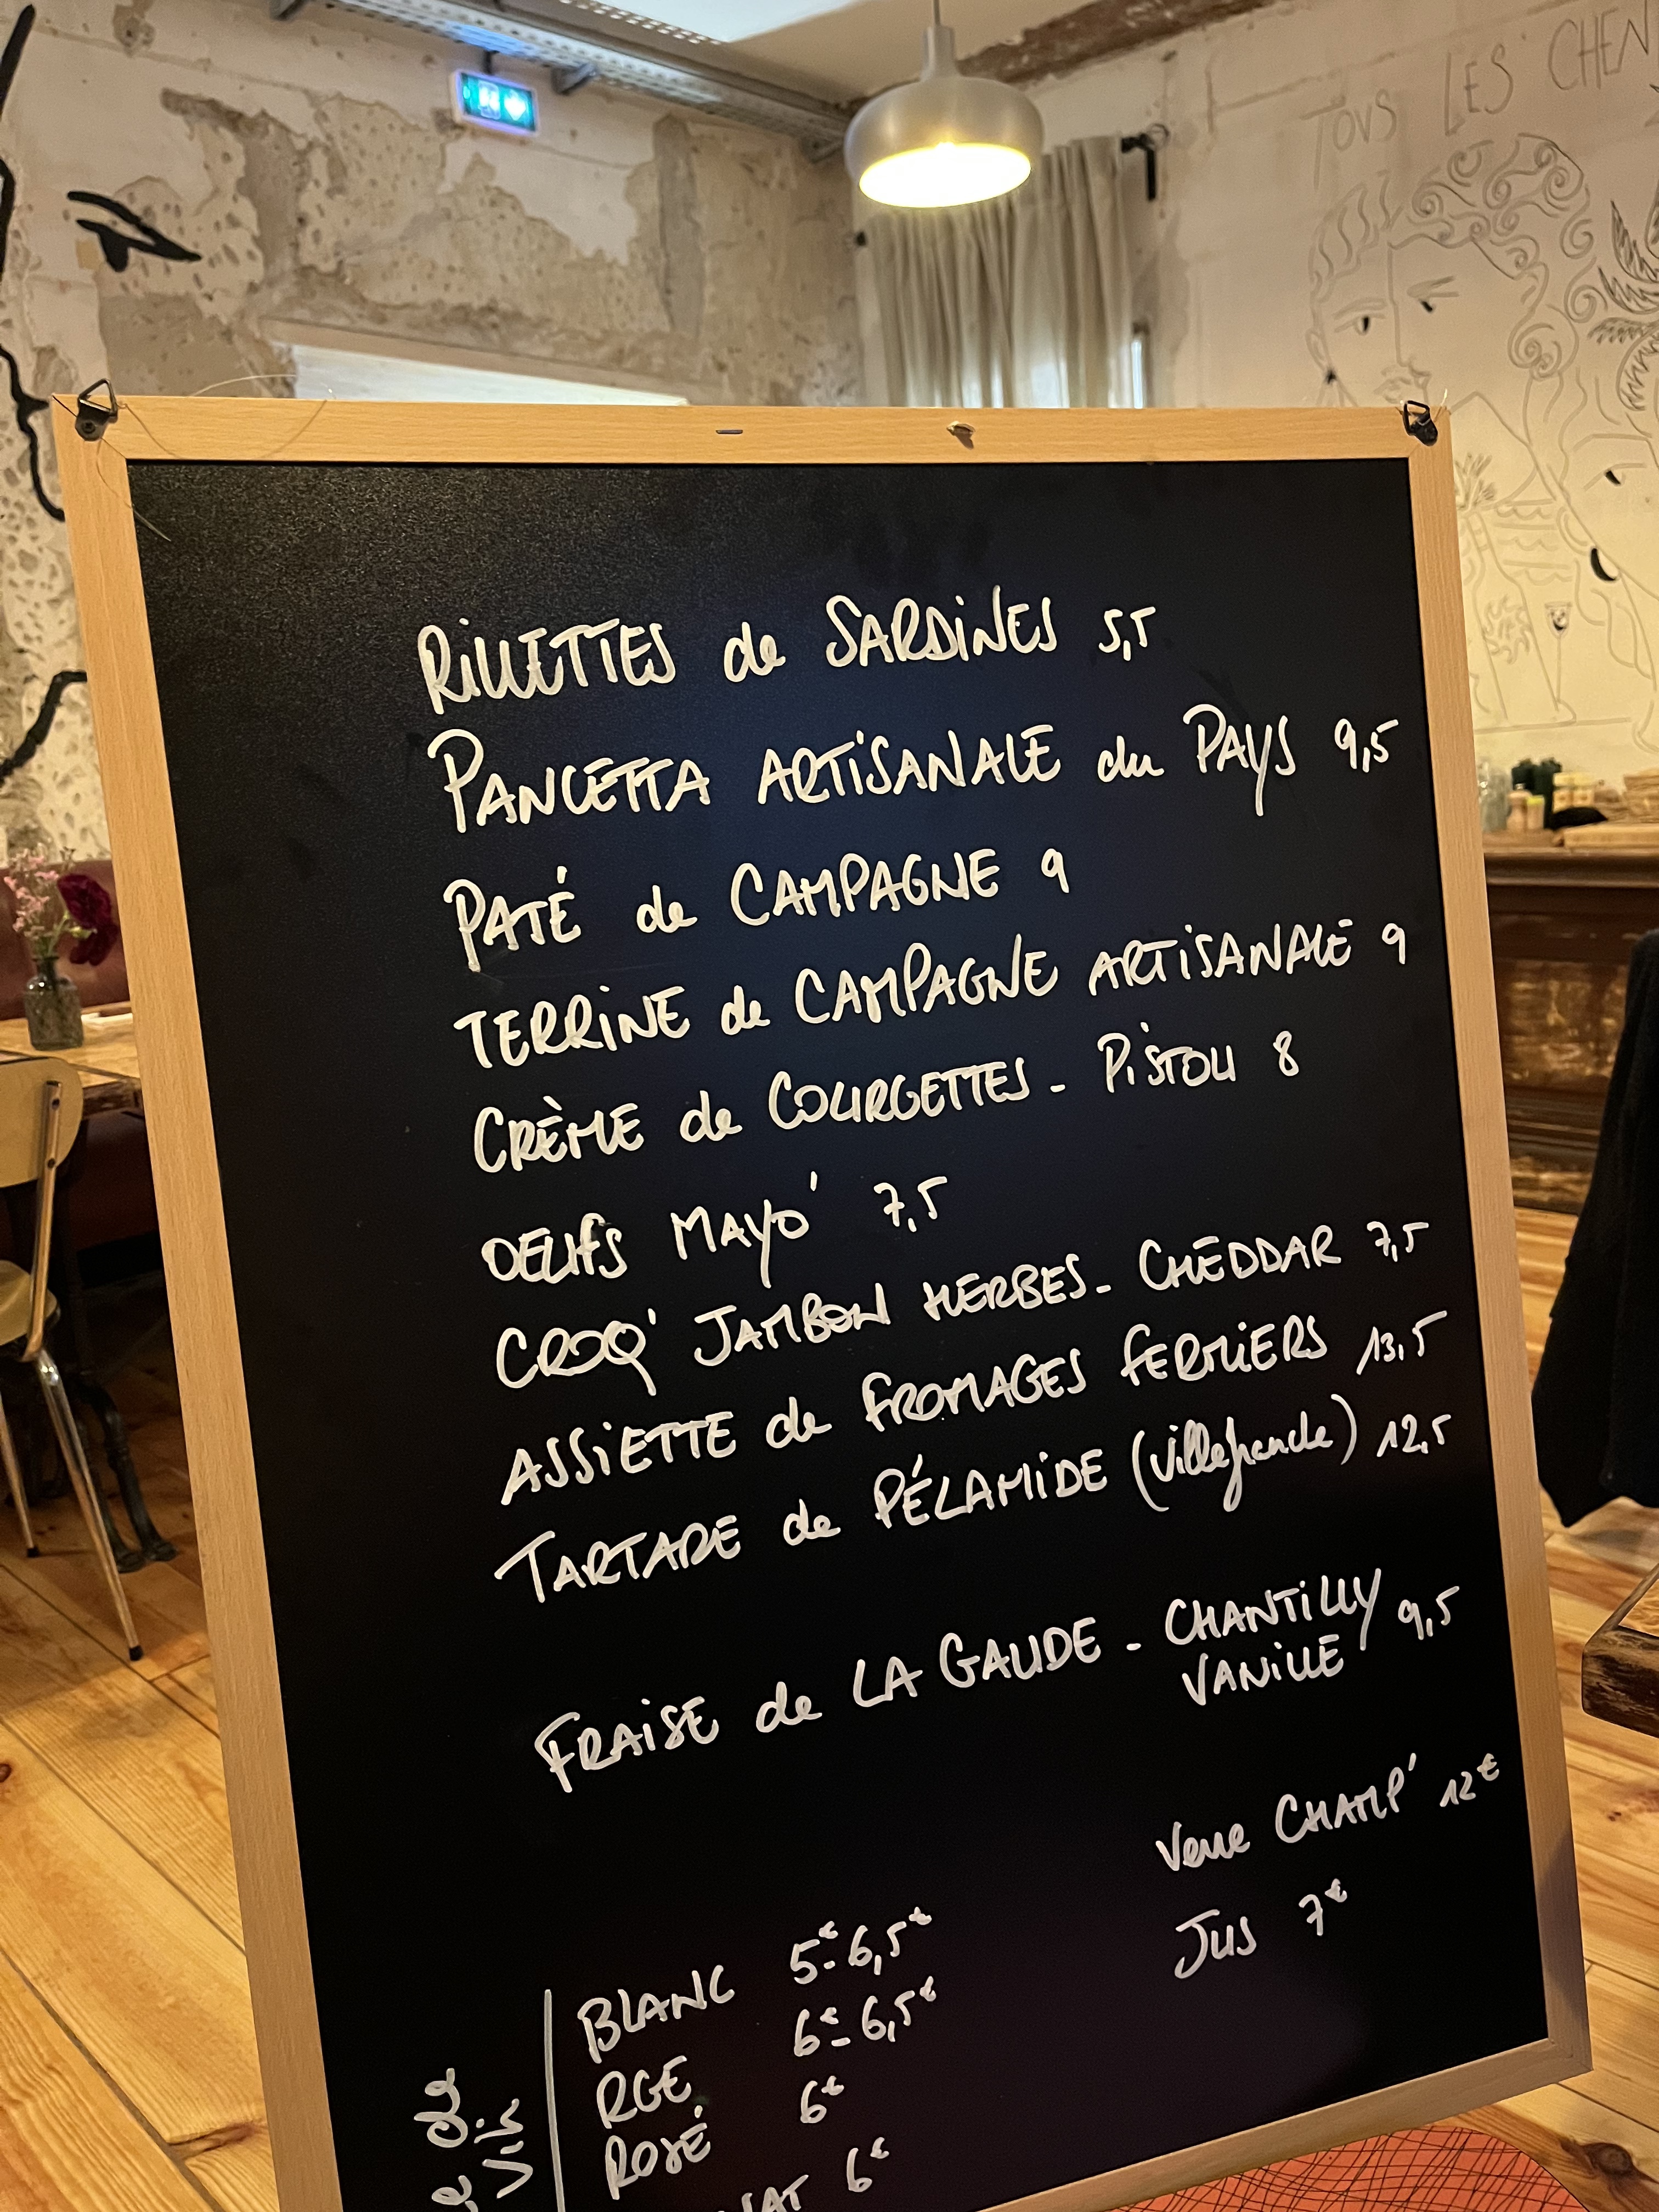 TOUS LES CHEN
RILLETTES de SARDINES 5,5
PANCETTA ARTISANALE du PAYS 9,5
PATÉ de CAMPAGNE 9
TERRINE de CAMPAGNE ARTISANALE 9
CRÈME de COURGETTES - PISTOU 8
OEUFS MAYO' 7,5
CROQ' JAMBON HERBES - CHEDDAR 7,5
ASSIETTE de FROMAGES FERMIERS 13,5
TARTARE de PÉLAMIDE (Villefranche) 12,5
FRAISE de LA GAUDE - CHANTILLY 9,5
VANILLE
Verre CHAMP' 12€
Jus 7€
BLANC 5€-6,5€
RGE 6€-6,5€
ROSÉ 6€
6€
de
Vin